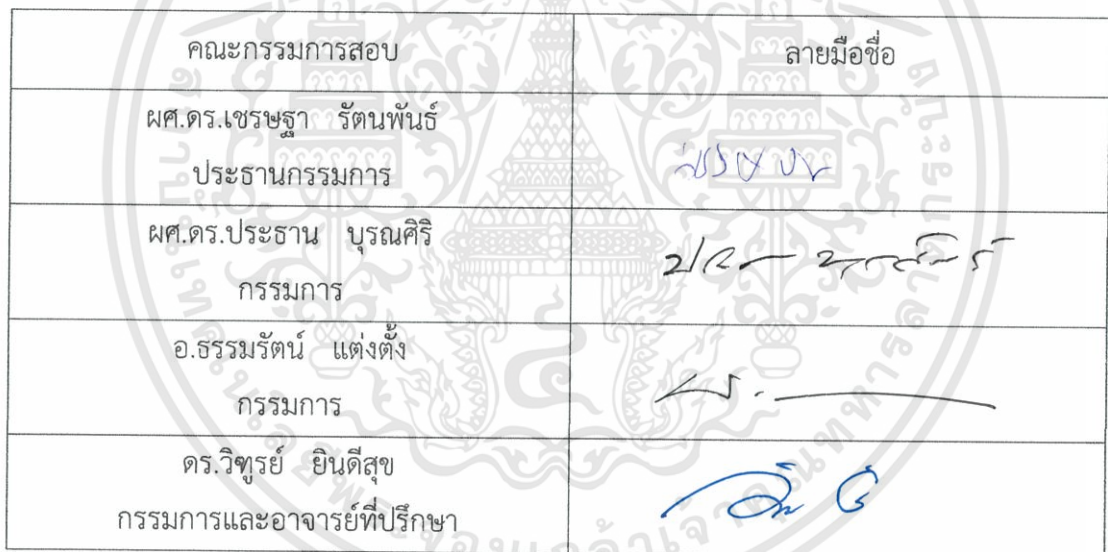 คณะกรรมการสอบ ลายมือชื่อ
ผศ.ดร.เชรษฐา รัตนพันธ์
ประธานกรรมการ
ผศ.ดร.ประธาน บุรณศิริ
กรรมการ
อ.ธรรมรัตน์ แต่งตั้ง
กรรมการ
ดร.วิฑูรย์ ยินดีสุข
กรรมการและอาจารย์ที่ปรึกษา